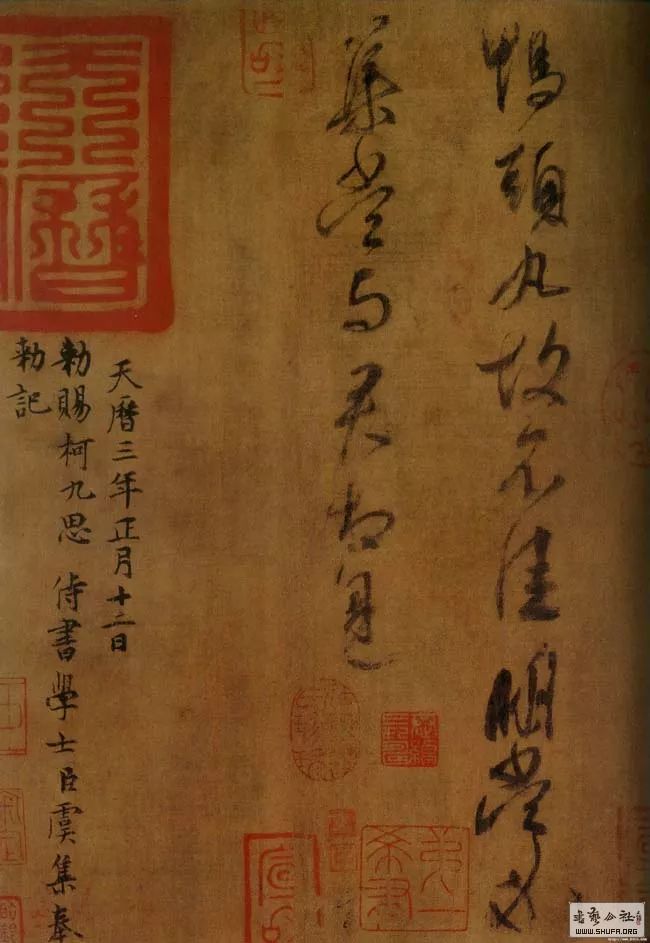 鴨頭丸故不佳明當必
集當与君相見
天曆三年正月十二日
勑賜柯九思侍書學士臣虞集奉
勑記
天曆
书艺公社
WWW.SHUFA.ORG